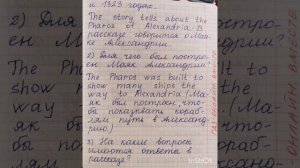 и 1323 годах.
The story tells about the
Pharos of Alexandria/В
рассказе говорится о Ма-
яке Александрии.
2) Для чего был постро-
ен Маяк Александрии
The Pharos was built to
show many ships the
way to Alexandria (Ма-
як был построен, что-
бы показывать кораб-
лям путь в Александ-
рию.)
3) На какие вопросы
имеются ответы в
рассказе?
InShOt